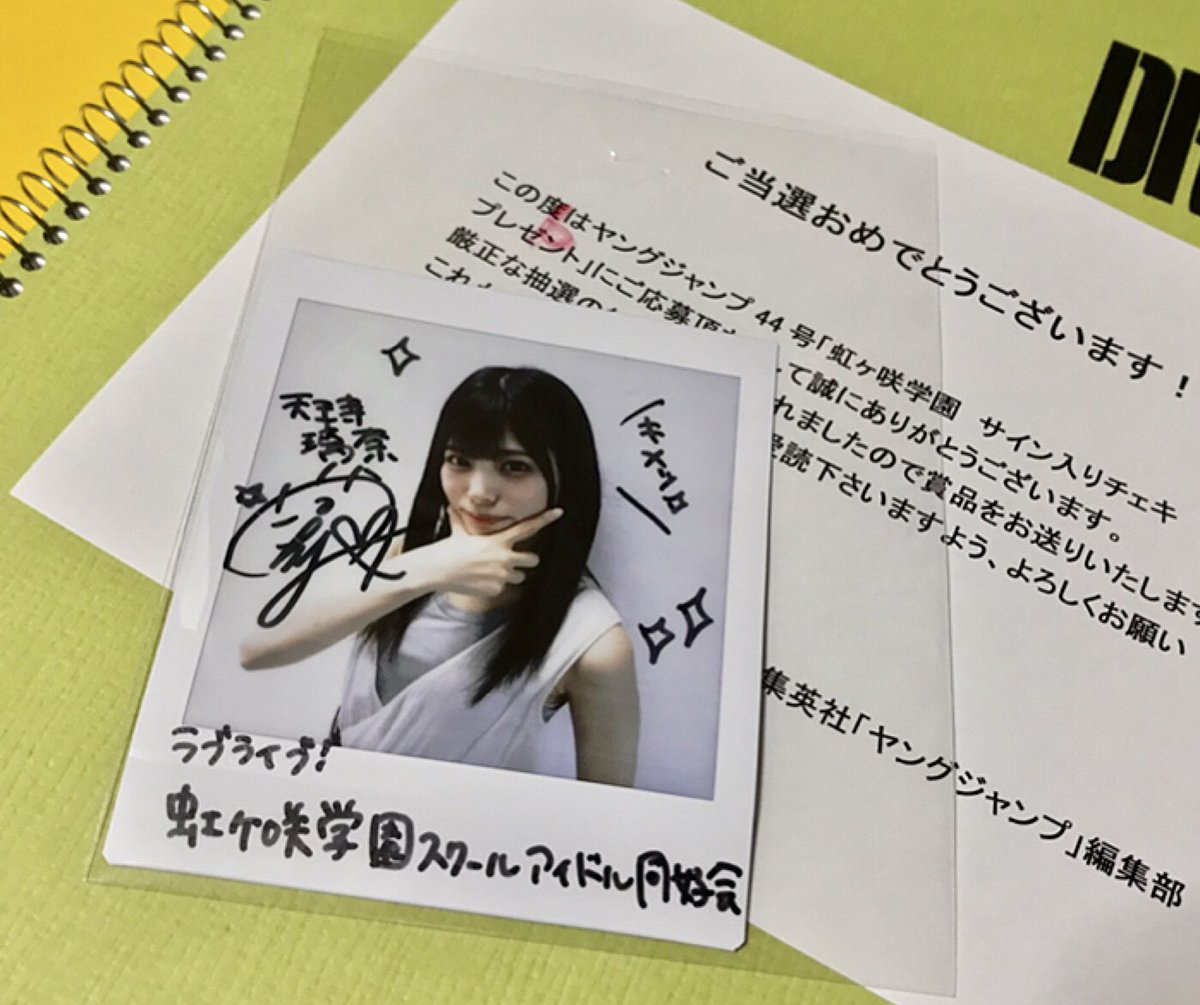 ご当選おめでとうございます！
この度はヤングジャンプ 44 号「虹ヶ咲学園　サイン入りチェキ
プレゼント」にご応募頂 て誠にありがとうございます。
厳正な抽選の れましたので賞品をお送りいたします
これ 愛読下さいますよう、よろしくお願い
集英社「ヤングジャンプ」編集部
天王寺
璃奈
キメッ
ラブライブ!
虹ヶ咲学園スクールアイドル同好会